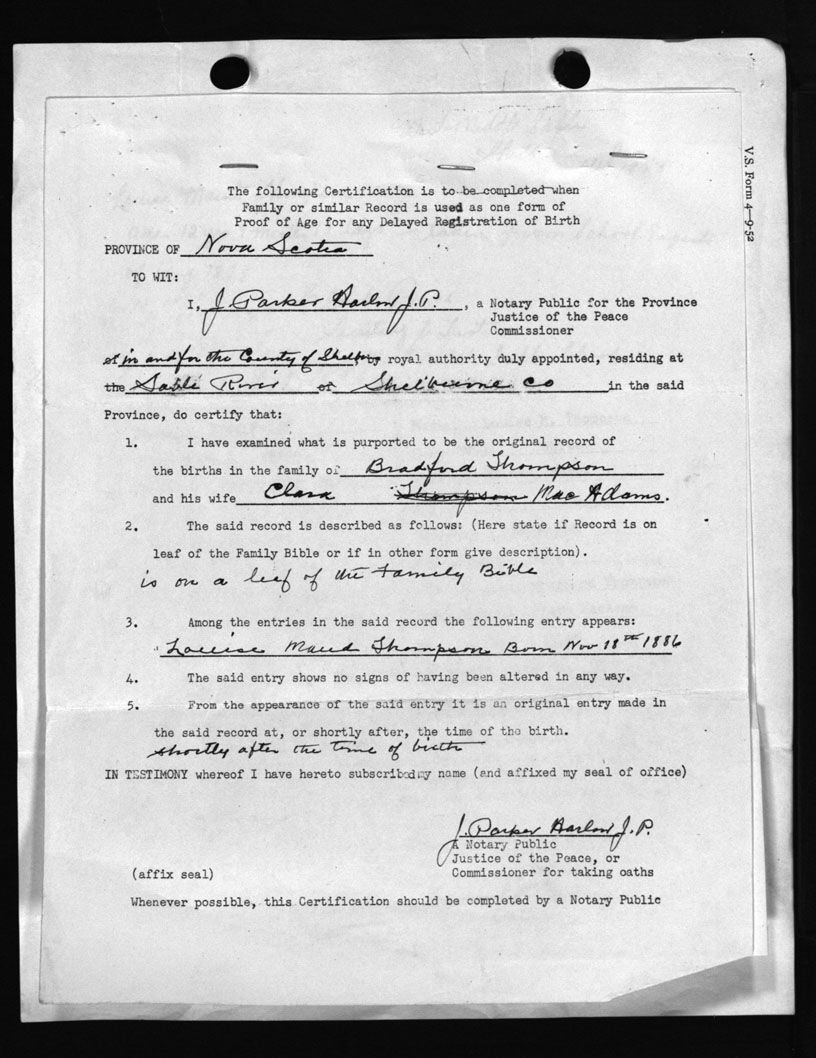 The following Certification is to be completed when
Family or similar Record is used as one form of
Proof of Age for any Delayed Registration of Birth
V.S. Form 4—9-52
PROVINCE OF Nova Scotia
TO WIT:
I, J. Parker Harlow J.P. , a Notary Public for the Province
Justice of the Peace
Commissioner
of in and for the County of Shelby royal authority duly appointed, residing at
the Sable River of Shelburne Co in the said
Province, do certify that:
1. I have examined what is purported to be the original record of
the births in the family of Bradford Thompson
and his wife Clara Thompson Mac Adams.
2. The said record is described as follows: (Here state if Record is on
leaf of the Family Bible or if in other form give description).
is on a leaf of the Family Bible
3. Among the entries in the said record the following entry appears:
Louise Maud Thompson Born Nov 18th 1886
4. The said entry shows no signs of having been altered in any way.
5. From the appearance of the said entry it is an original entry made in
the said record at, or shortly after, the time of the birth.
shortly after the time of birth
IN TESTIMONY whereof I have hereto subscribed my name (and affixed my seal of office)
J. Parker Harlow J.P.
A Notary Public
Justice of the Peace, or
(affix seal) Commissioner for taking oaths
Whenever possible, this Certification should be completed by a Notary Public